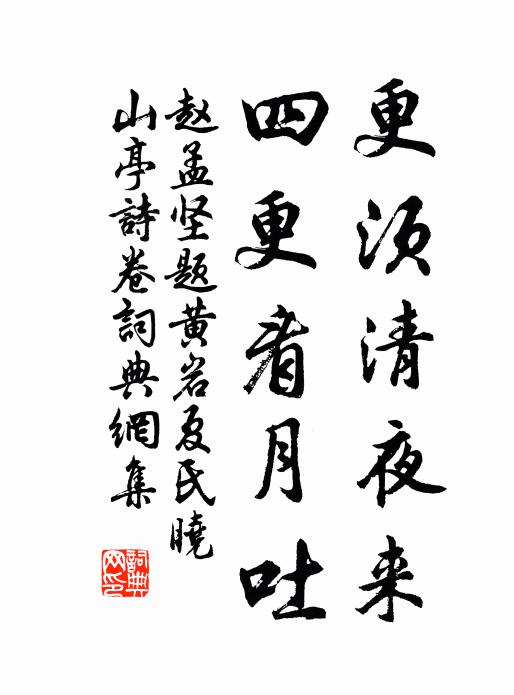 更须清夜来
四更看月吐
赵孟坚题黄岩夏氏曉
山亭詩卷詞典網集
詞典网印